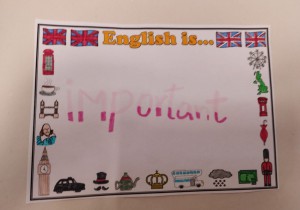 English is...
important